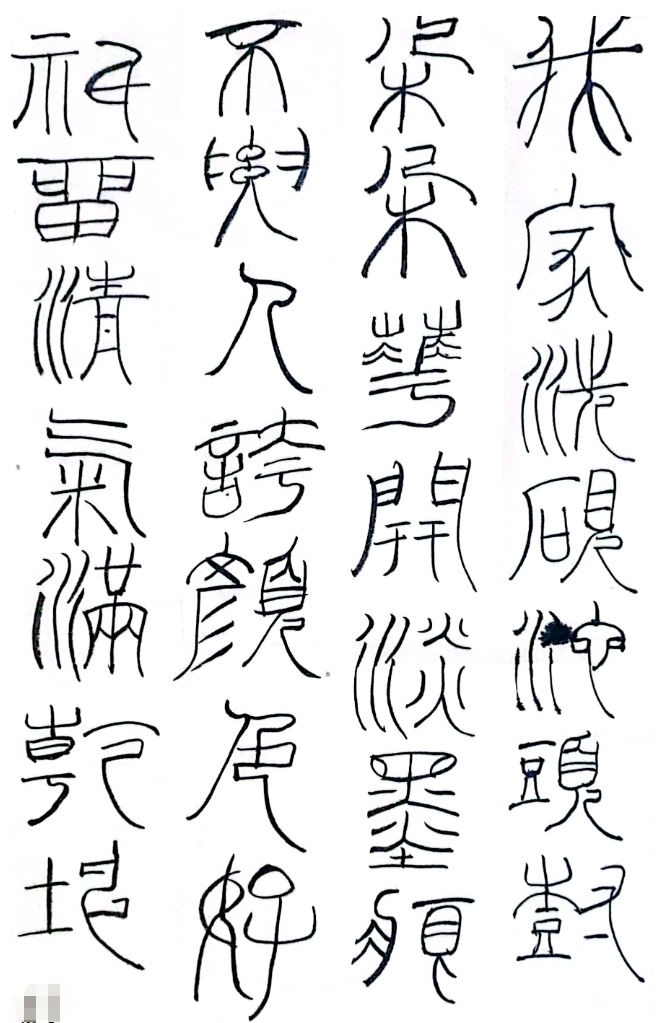 我家洗硯池頭尌
朵朵華開淡墨
不要人誇顏色好
祇留清氣滿乾坤